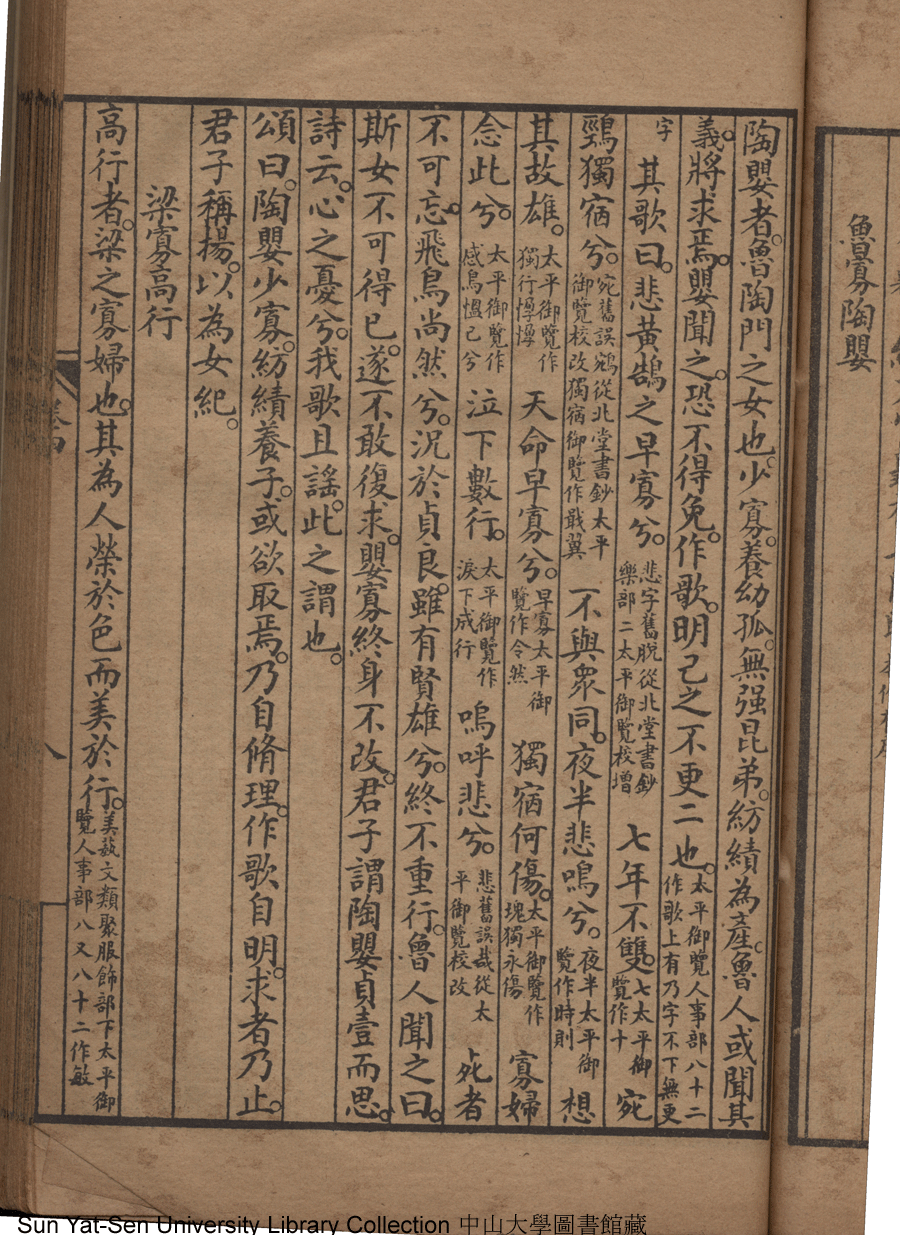 魯寡陶嬰
陶嬰者。魯陶門之女也。少寡。養幼孤。無强昆弟。紡績為產。魯人或聞其
義。將求焉。嬰聞之。恐不得免。作歌。明己之不更二也。太平御覽人事部八十二作歌上有乃字不下無更
字其歌曰。悲黃鵠之早寡兮。悲字舊脫從北堂書鈔樂部二太平御覽校增七年不雙。七太平御覽作十宛
鵛獨宿兮。宛舊誤鵷從北堂書鈔太平御覽校改獨宿御覽作戢翼不與衆同。夜半悲鳴兮。夜半太平御覽作時則想
其故雄。太平御覽作獨行慱慱天命早寡兮。早寡太平御覽作令然獨宿何傷。太平御覽作塊獨永傷寡婦
念此兮。太平御覽作感鳥愠己兮泣下數行。太平御覽作淚下成行嗚呼悲兮。悲舊誤哉從太平御覽校改死者
不可忘。飛鳥尚然兮。況於貞良。雖有賢雄兮。終不重行。魯人聞之曰。
斯女不可得已。遂不敢復求。嬰寡終身不改。君子謂陶嬰貞壹而思。
詩云。心之憂兮。我歌且謠。此之謂也。
頌曰。陶嬰少寡。紡績養子。或欲取焉。乃自脩理。作歌自明。求者乃止。
君子稱揚。以為女紀。
梁寡高行
高行者。梁之寡婦也。其為人榮於色而美於行。美蓺文類聚服飾部下太平御覽人事部八又八十二作敏
八
Sun Yat-Sen University Library Collection 中山大學圖書館藏